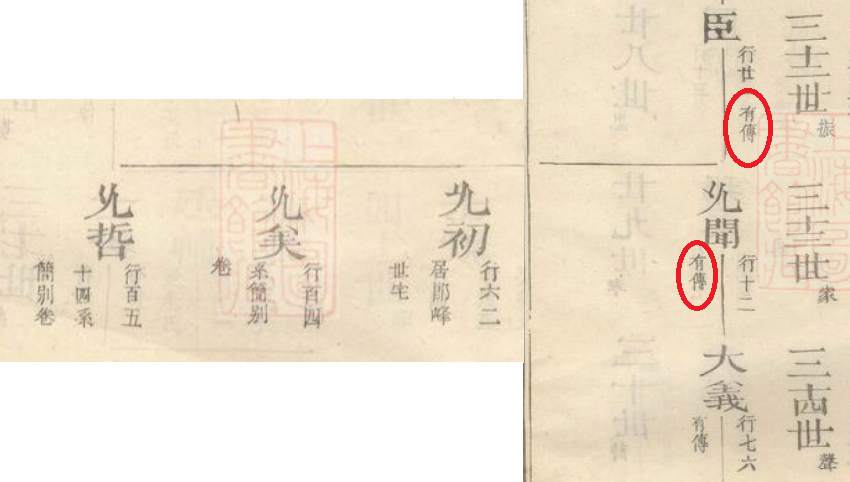 三十二世 振
臣
行廿 有傳
三十三世 家
允聞
行十二
有傳
三十四世 聲
大義
行七六
有傳
允初
行六二
居郎峰
世宅
允矣
行百四
系簡別
卷
允哲
行百五
十四系
簡別卷